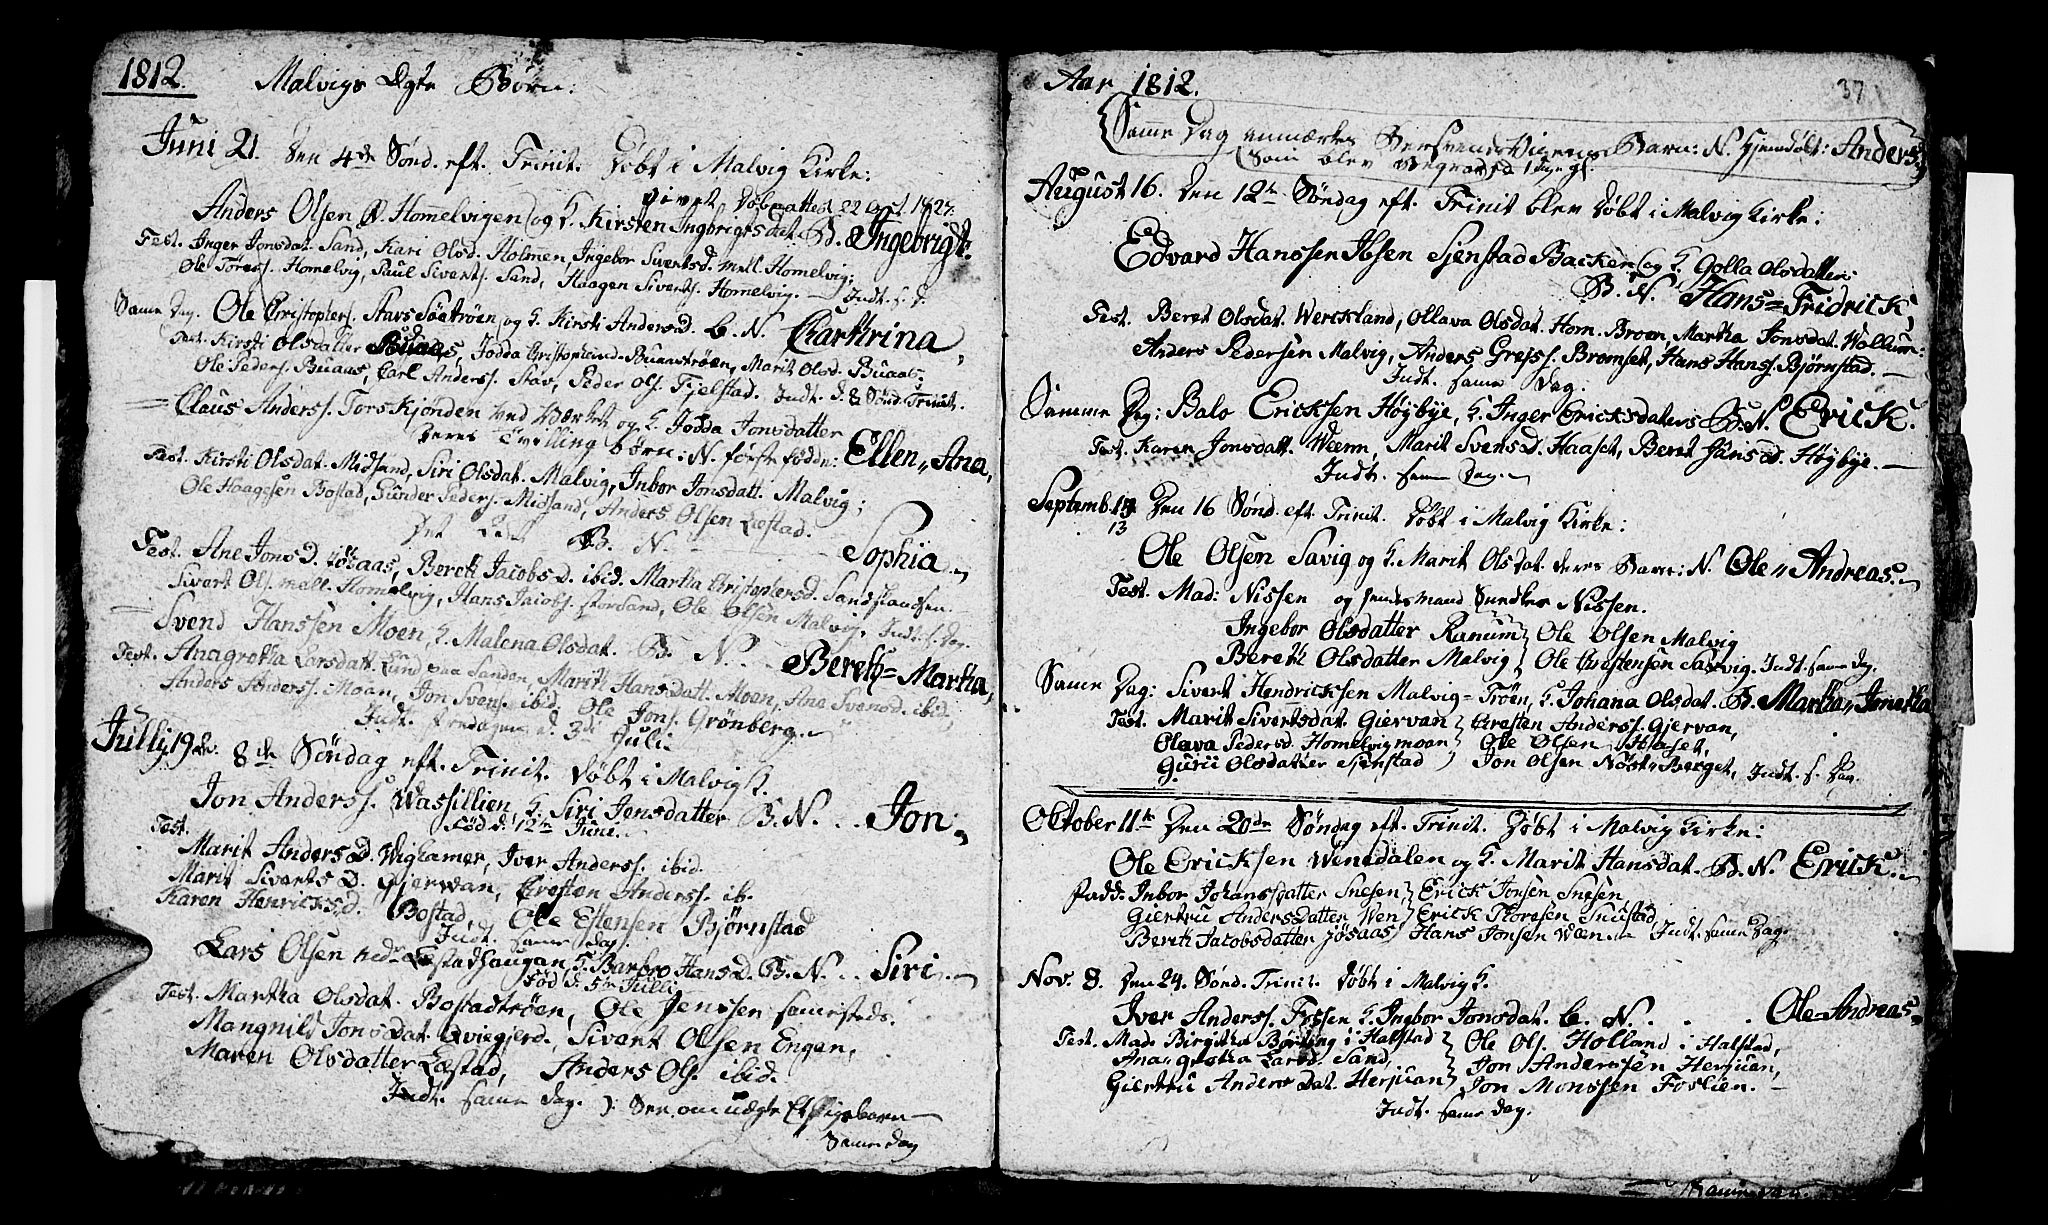 1812. Malvigs Ægte Börn:
Juni 21. den 4de Sönd. eft. Trinit. Döbt i Malvig Kirke:
Anders Olsen Homelvigen og H. Kirsten Ingbrigtsdat. B. Ingebrigt.
Test. Inger Jonsdat. Sand, Kari Olsd. Holmen, Ingebor Sivertsd. mell. Homelvig;
Ole Töress. Homelvig, Paul Siverts. Sand, Haagen Siverts. Homelvig. — Indt. s. d.
Same Dag. Ole Cristophers. Stavs Söetröen og H. Kirsti Andersd. B. N. Chathrina,
Test. Kirsti Olsdatter Buaas, Jodda Christophersd. Buaaströen, Marit Olsd. Buaas.
Ole Peders. Buaas, Carl Anderss. Stav, Peder Ols. Fjelstad. Indt. d. 8 Sönd. Trinit.
Claus Anderss. Torskjönden og H. Jodda Jonsdatter
deres Tvilling Börn: N. förste födde: Ellen, Ana,
Test. Kirsti Olsdat. Midsand, Siri Olsdat. Malvig, Inbor Jonsdatt. Malvig;
Ole Haagesen Bostad, Gunder Peders. Midsand, Anders Olsen Læstad.
B. N. Sophia.
Test. Ane Jonsd. Jösaas, Bereth Jacobsd. ibid. Martha Christophersd. Sandstandsen.
Sivert Ols. mell. Homelvig, Hans Jacobs. Storsand, Ole Olsen Malvig, Indt. s. Dag.
Svend Hanssen Moen, H. Malena Olsdat. B. N. Bereth = Martha,
Test. Anagretha Larsdat. Lund paa Sanden, Marit Hansdatt. Moen, Ane Svensd. ibid.
Anders Anderss. Moan, Jon Svens. ibid. Ole Jons. Grönberg.
Indt. d. 3di Juli.
Julij 19de. 8de Söndag eft. Trinit. döbt i Malvig K.
Jon Anderss. Wassillien, H. Siri Jensdatter B. N. Jon,
Föd d. 12te Juni.
Test. Marit Andersd. Wighamer, Iver Anderss. ibid.
Marit Siverts d. Gjerwan, Cresten Anderss. ib.
Karen Henricksd. Bostad, Ole Estensen Björnstad
Indt. same dag.
Lars Olsen nedre Læstadhaugan, H. Barbro Hansd. B. N. Siri.
Föd d. 5te Julli
Test. Martha Olsdat. Bostadtröen, Ole Jenssen samesteds.
Mangnild Jonsdat. Qviegjerd, Sivert Olsen Engen,
Maren Olsdatter Læstad, Anders Ols. ibid.
Indt. same dag. See om uægte
Same dag
Aar 1812. 37
Same Dag anmærkes Barn: N. Hjemdöbt: Anders,
som blev
August 16. den 12te Söndag eft. Trinit blev döbt i Malvig Kirke:
Edvard Hanssen Ibsen Sjenstad Backen og H. Golla Olsdatter
B. N. Hans = Fridrick,
Test. Beret Olsdat. Werckland, Ollava Olsdat. Hom. Broen, Martha Jonsdat. Wollum:
Anders Pedersen Malvig, Anders Grejss. Bromset, Hans Hans. Björnstad. —
Indt. same Dag.
Samme Dag: Balo Ericksen Höybye, H. Inger Ericksdatters B. N. Erick.
Test. Karen Jonsdatt. Weenn, Marit Svensd. Haaset, Beret Hansd. Höybye. —
Indt. same Dag.
Septemb. 13 Den 16 Sönd. eft. Trinit. Döbt i Malvig Kirke:
13
Ole Olsen Savig og H. Marit Olsdat. deres Barn: N. Ole, Andreas.
Test. Mad: Nissen og Nissen.
Ingebor Olsdatter Ranum } Ole Olsen Malvig
Bereth Olsdatter Malvig } Ole Crestensen Saxvig. Indt. same dag.
Same Dag: Sivert Hendricksen Malvig = Tröen, H. Johana Olsdat. B. Martha, Jonetha
Test. Marit Sivertsdat. Gjervan } Cresten Anderss. Gjervan,
Olava Pedersd. Homelvigmoan } Ole Olsen Haaset,
Gurii Olsdatter Sjenstad } Jon Olsen Nöst-Berget, Indt. s. Dag.
Oktober 11te Den 20de Söndag eft. Trinit. Döbt i Malvig Kirke:
Ole Ericksen Wenedalen og H. Marit Hansdat. B. N. Erick.
Fadd. Inbor Johansdatter Snesen } Erick Jonsen Snesen
Giertru Andersdatter Wen } Erick Thoresen Snustad
Bereth Jacobsdatter Jösaas } Hans Jonsen Wæn. Indt. same Dag.
Nov. 8. Den 24. Sönd. Trinit. döbt i Malvig K.
Iver Anderss. Fossen H. Ingbor Jonsdat. B. N. . . . Ole-Andreas,
Test. Mad. Birgitha Börsting i Halstad } Ole Ols. Holland i Halstad,
Ana, Gretha Larsd. Sand, } Jon Anderssen Herjuen,
Giertru Anders Dat. Herjuan } Jon Monssen Foslien. —
Indt. same dag.